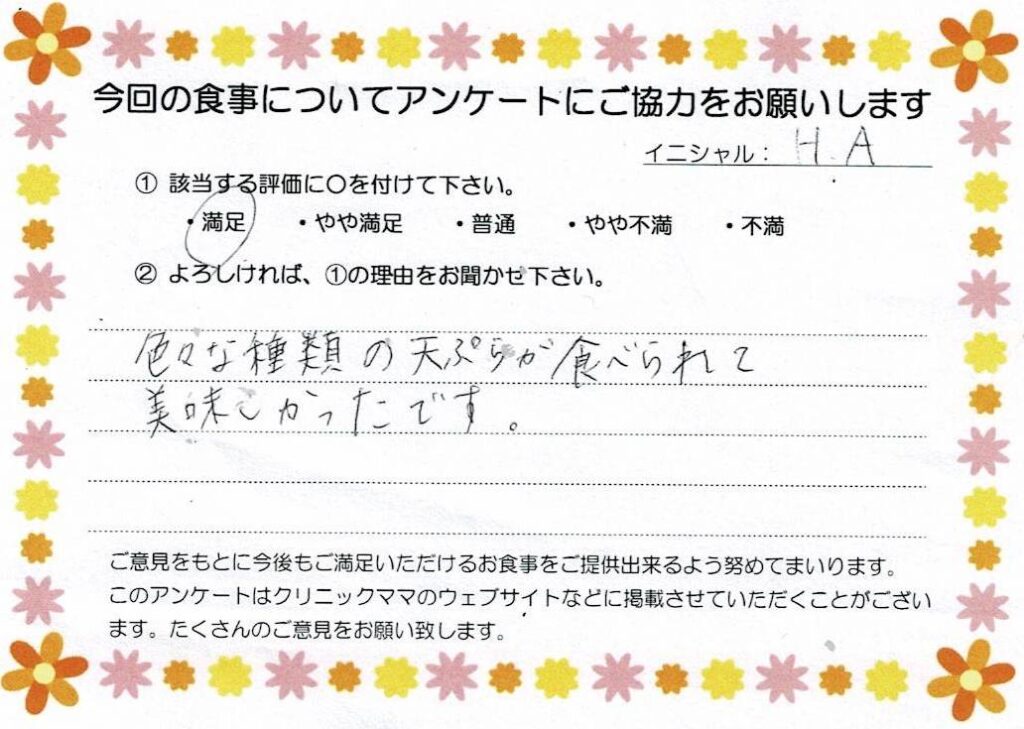 今回の食事についてアンケートにご協力をお願いします
イニシャル: H.A
① 該当する評価に〇を付けて下さい。
・満足 ・やや満足 ・普通 ・やや不満 ・不満
② よろしければ、①の理由をお聞かせ下さい。
色々な種類の天ぷらが食べられて
美味しかったです。
ご意見をもとに今後もご満足いただけるお食事をご提供出来るよう努めてまいります。
このアンケートはクリニックママのウェブサイトなどに掲載させていただくことがござい
ます。たくさんのご意見をお願い致します。